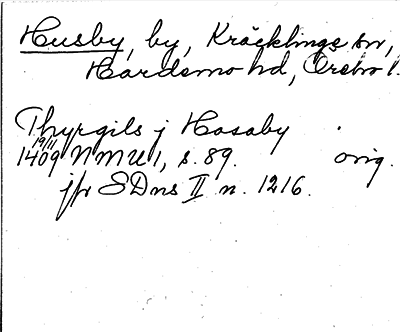 Husby, by, Kräcklinge sn,
Hardemo hd, Örebro l.
Thyrgils j Hosaby
19/11
1409 NMU 1, s. 89. orig.
jfr SDns II n. 1216.